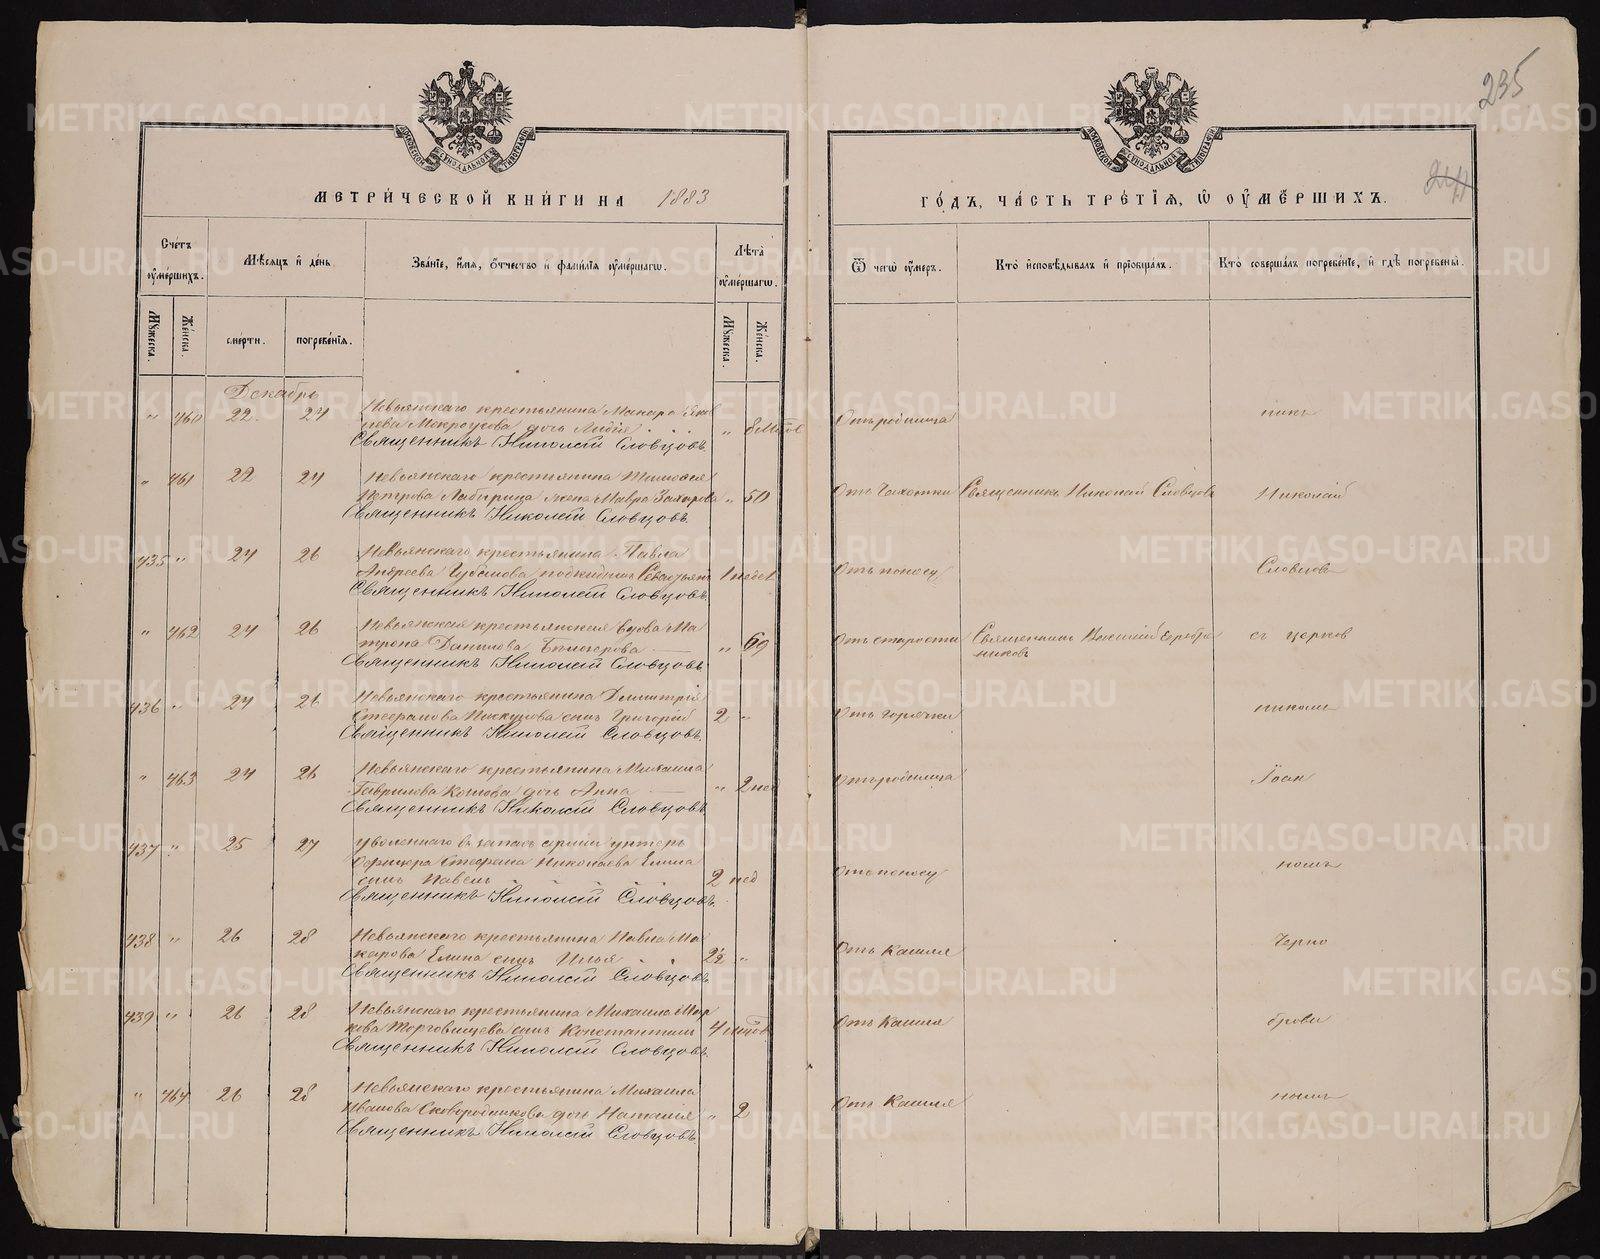 235
МЕТРИЧЕСКОЙ КНИГИ НА 1883
ГОДЪ, ЧАСТЬ ТРЕТІЯ, Ѿ ОУМЕРШИХЪ.
Счетъ оумершихъ.
Мѣсяцъ и день
Званіе, имя, отчество и фамилія оумершагѡ.
Лѣта оумершагѡ.
Ѿ чегѡ оумеръ.
Кто исповѣдывалъ и пріобщалъ.
Кто совершалъ погребеніе, и гдѣ погребены.
Мужеска.
Женска.
смерти.
погребенія.
Мужеска.
Женска.
Декабрь
" 460 22. 24 Невьянскаго крестьянина Макара Яков
лева Мокроусова дочь Лидія " 8 мѣсяцов Отъ родимца
Священникъ Николай Словцовъ.
" 461 22 24 Невьянскаго крестьянина Тимофея
Петрова жена Мавра Захарова " 50 Отъ чахотки Священникъ Николай Словцовъ Николай
Священникъ Николай Словцовъ.
435 " 24 26 Невьянскаго крестьянина Павла
Андреева подкидышъ Севастьянъ 1 недел Отъ поносу Словцовъ
Священникъ Николай Словцовъ.
" 462 24 26 Невьянская крестьянская вдова Ма
трона Данилова " 69 Отъ старости Священникъ Василій Серебре
никовъ
съ церков
Священникъ Николай Словцовъ
436 " 24 26 Невьянскаго крестьянина Димитрія
Стефанова Пискунова сынъ Григорій 2 " Отъ горячки никомъ
Священникъ Николай Словцовъ.
" 463 24 26 Невьянскаго крестьянина Михаила
Гаврилова дочь Анна " 2 нед Отъ родимца Іоан
Священникъ Николай Словцовъ.
437 " 25 27 Уволеннаго въ запасъ арміи унтеръ
Офицера Стефана Николаева Елина
сынъ Павелъ 2 нед Отъ поносу номъ
Священникъ Николай Словцовъ.
438 " 26 28 Невьянскаго крестьянина Павла Ма
карова Елина сынъ Илья 2½ " Отъ Кашля Черно
Священникъ Николай Словцовъ.
439 " 26 28 Невьянскаго крестьянина Михаила Мар
кова Торговищева сынъ Константинъ 4 мѣсяцов Отъ Кашля брови
Священникъ Николай Словцовъ.
" 464 26 28 Невьянскаго крестьянина Михаила
Иванова Сковородникова дочь Наталія " 2 Отъ Кашля нымъ
Священникъ Николай Словцовъ.
METRIKI.GASO-URAL.RU